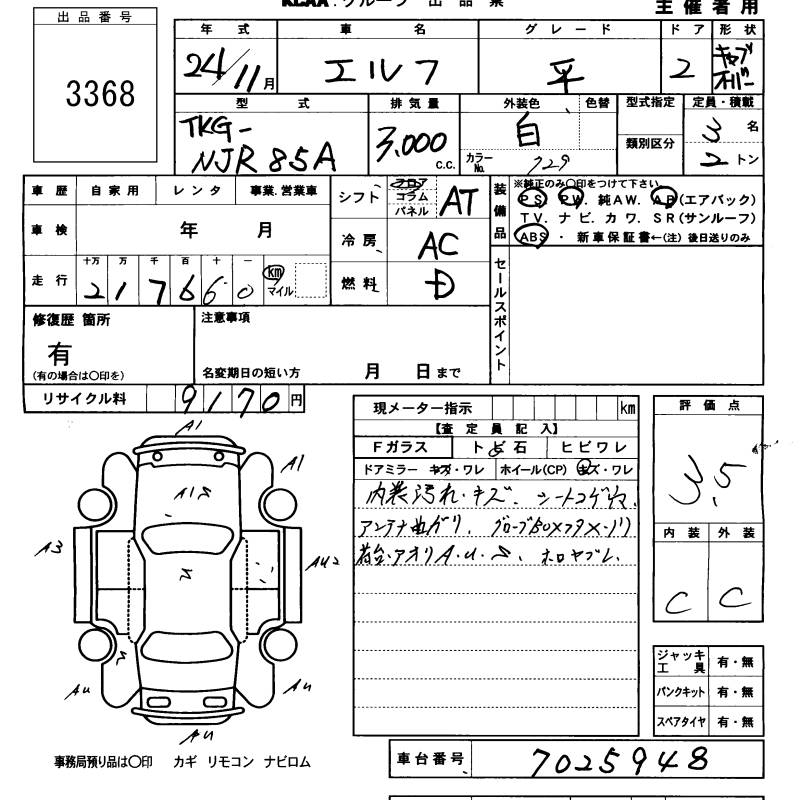 KCAA グループ 出品票
主催者用
出品番号
3368
年式 車名 グレード ドア 形状
24/11月 エルフ 平 2 キャブオーバー
型式 排気量 外装色 色替 型式指定 定員・積載
TKG-
NJR85A 3,000 c.c. 白 カラーNo. 729 類別区分 3名 2トン
車歴 自家用 レンタ 事業.営業車
車検 年 月
走行 十万 万 千 百 十 一
217660 km マイル
シフト フロア コラム パネル AT
冷房 AC
燃料 D
装備品 ※純正のみ〇印をつけて下さい
PS. PW. 純AW. AB(エアバック)
TV. ナビ. カワ. SR(サンルーフ)
ABS ・ 新車保証書←(注) 後日送りのみ
セールスポイント
修復歴 箇所
有
(有の場合は〇印を)
注意事項
名変期日の短い方 月 日まで
リサイクル料 9170円
現メーター指示 km
【査定員記入】
Fガラス トビ石 ヒビワレ
ドアミラー キズ・ワレ ホイール(CP) キズ・ワレ
内装汚れ・キズ、シートコゲ
アンテナ曲ガリ、グローブBOXフタ
荷台・アオリA・U・S、ホロヤブレ、
評価点
3.5
内装 外装
C C
A1
A1
A1S
A3
AU2
AU
AU
ジャッキ工具 有・無
パンクキット 有・無
スペアタイヤ 有・無
事務局預り品は〇印 カギ リモコン ナビロム
車台番号 7025948